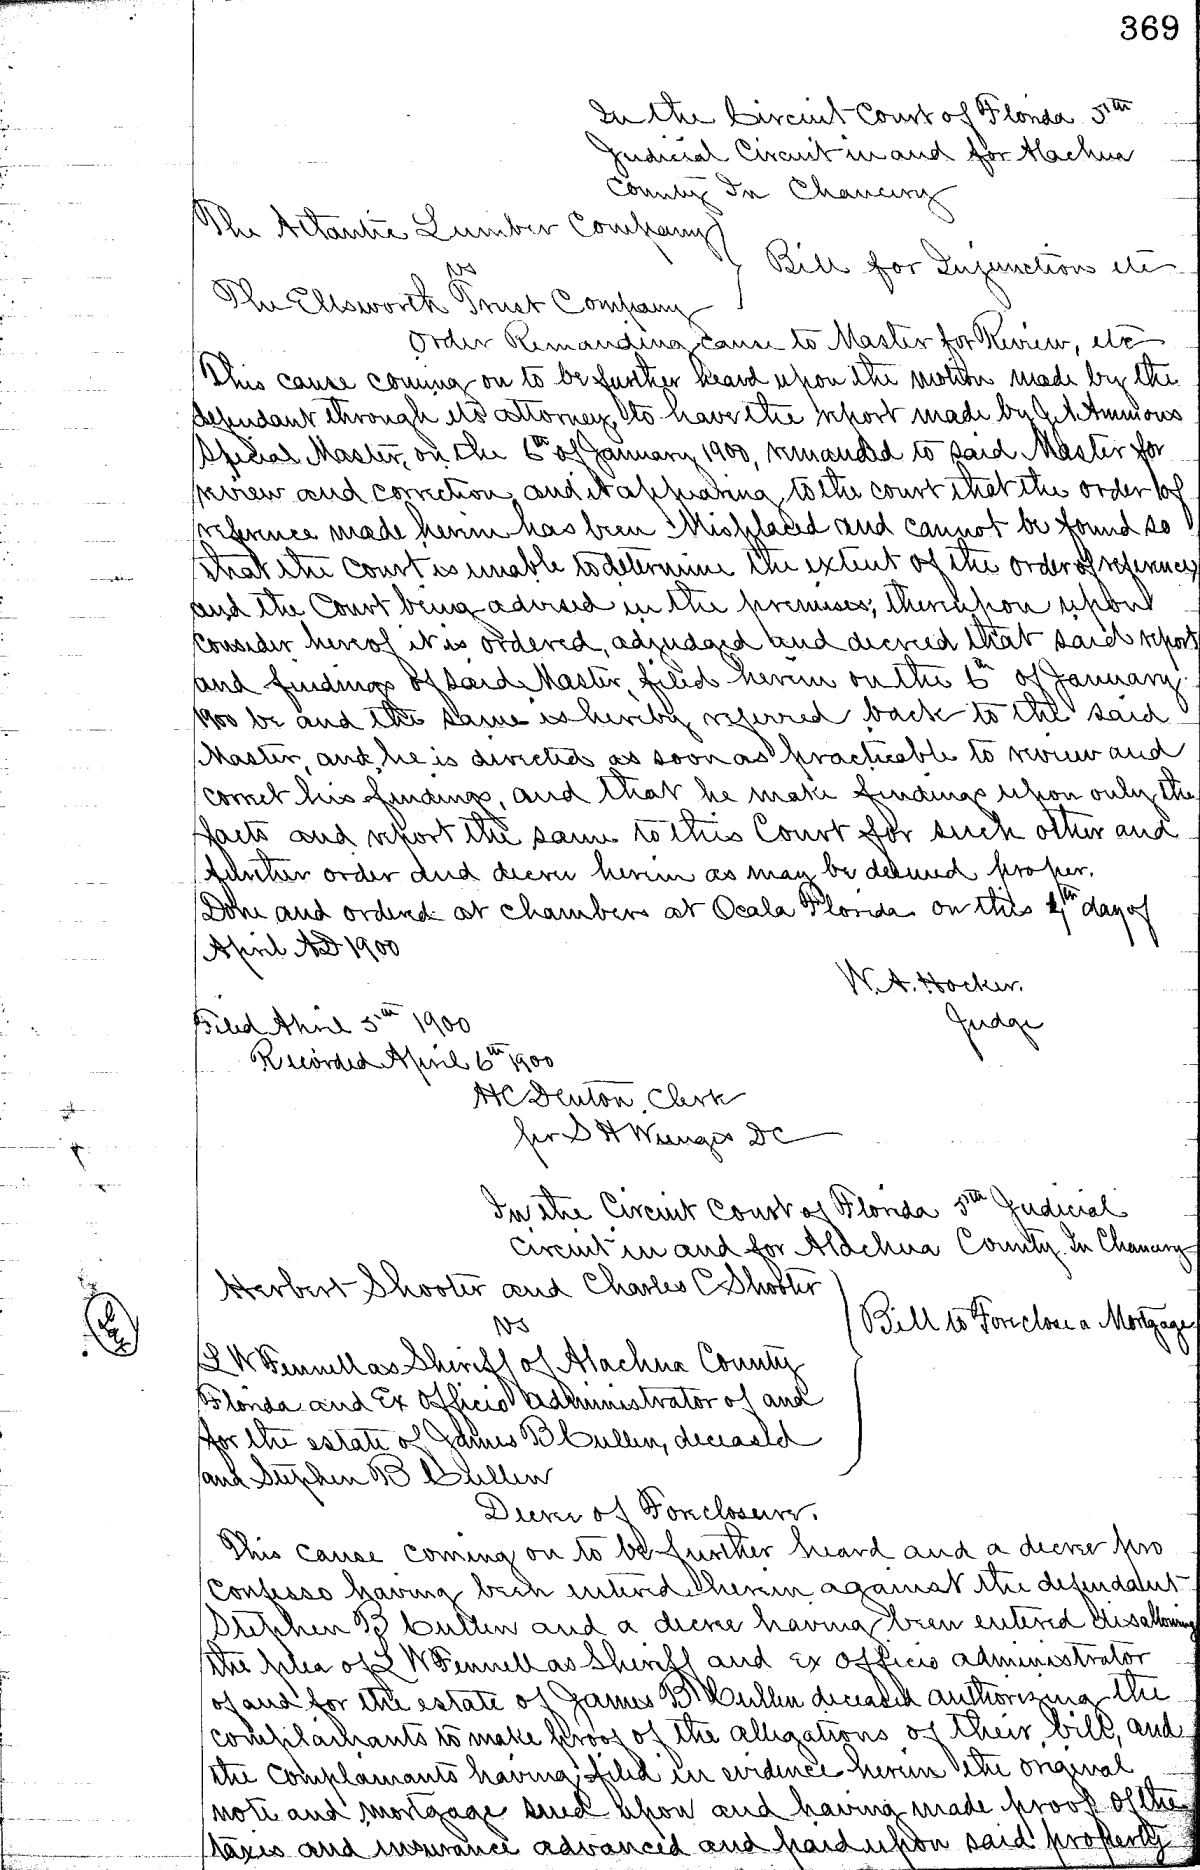 369
In the Circuit Court of Florida 5th
Judicial Circuit in and for Alachua
County In Chancery
The Atlantic Lumber Company
vs
Bill for Injunction etc
The Ellsworth Trust Company
Order Remanding cause to Master for Review, etc
This cause coming on to be further heard upon the motion made by the
defendant through its attorney, to have the report made by Ammons
Special Master, on the 6th of January 1900, remanded to said Master for
review and correction, and it appearing to the court that the order of
reference made herein has been Misplaced and cannot be found so
that the Court is unable to determine the extent of the order of reference,
and the Court being advised in the premises, thereupon upon
consider hereof it is ordered, adjudged and decreed that said report
and findings of said Master, filed herein on the 6th of January
1900 be and the same is hereby referred back to the said
Master, and he is directed as soon as practicable to review and
correct his findings, and that he make findings upon only the
facts and report the same to this Court for such other and
further order and decree herein as may be deemed proper.
Done and ordered at chambers at Ocala Florida on this 4th day of
April AD 1900
W. A. Hocker.
Judge
Filed April 5th 1900
Recorded April 6th 1900
HC Denton, Clerk
per S H Wienges DC
In the Circuit Court of Florida 5th Judicial
Circuit in and for Alachua County In Chancery
Herbert Shooter and Charles C Shooter
vs
Bill to Foreclose a Mortgage
L W Fennell as Sheriff of Alachua County
Florida and Ex Officio administrator of and
for the estate of James B Cullen, deceased
and Stephen B Cullen
Decree of Foreclosure.
This cause coming on to be further heard and a decree pro
Confesso having been entered herein against the defendant
Stephen B Cullen and a decree having been entered disallowing
the plea of L W Fennell as Sheriff and Ex Officio administrator
of and for the estate of James B Cullen deceased authorizing the
complainants to make proof of the allegations of their bill, and
the Complainants having filed in evidence herein the original
note and mortgage sued upon and having made proof of the
taxes and insurance advanced and paid upon said property